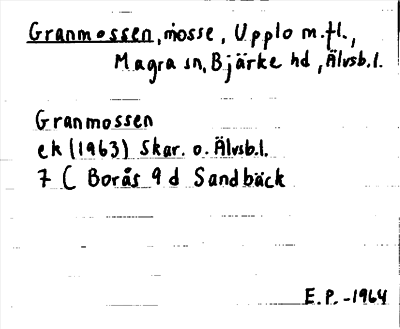 Granmossen, mosse, Upplo m.fl.,
Magra sn, Bjärke hd, Älvsb.l.
Granmossen
ek (1963) Skar. o. Älvsb.l.
7 C Borås 9 d Sandbäck
E.P. -1964